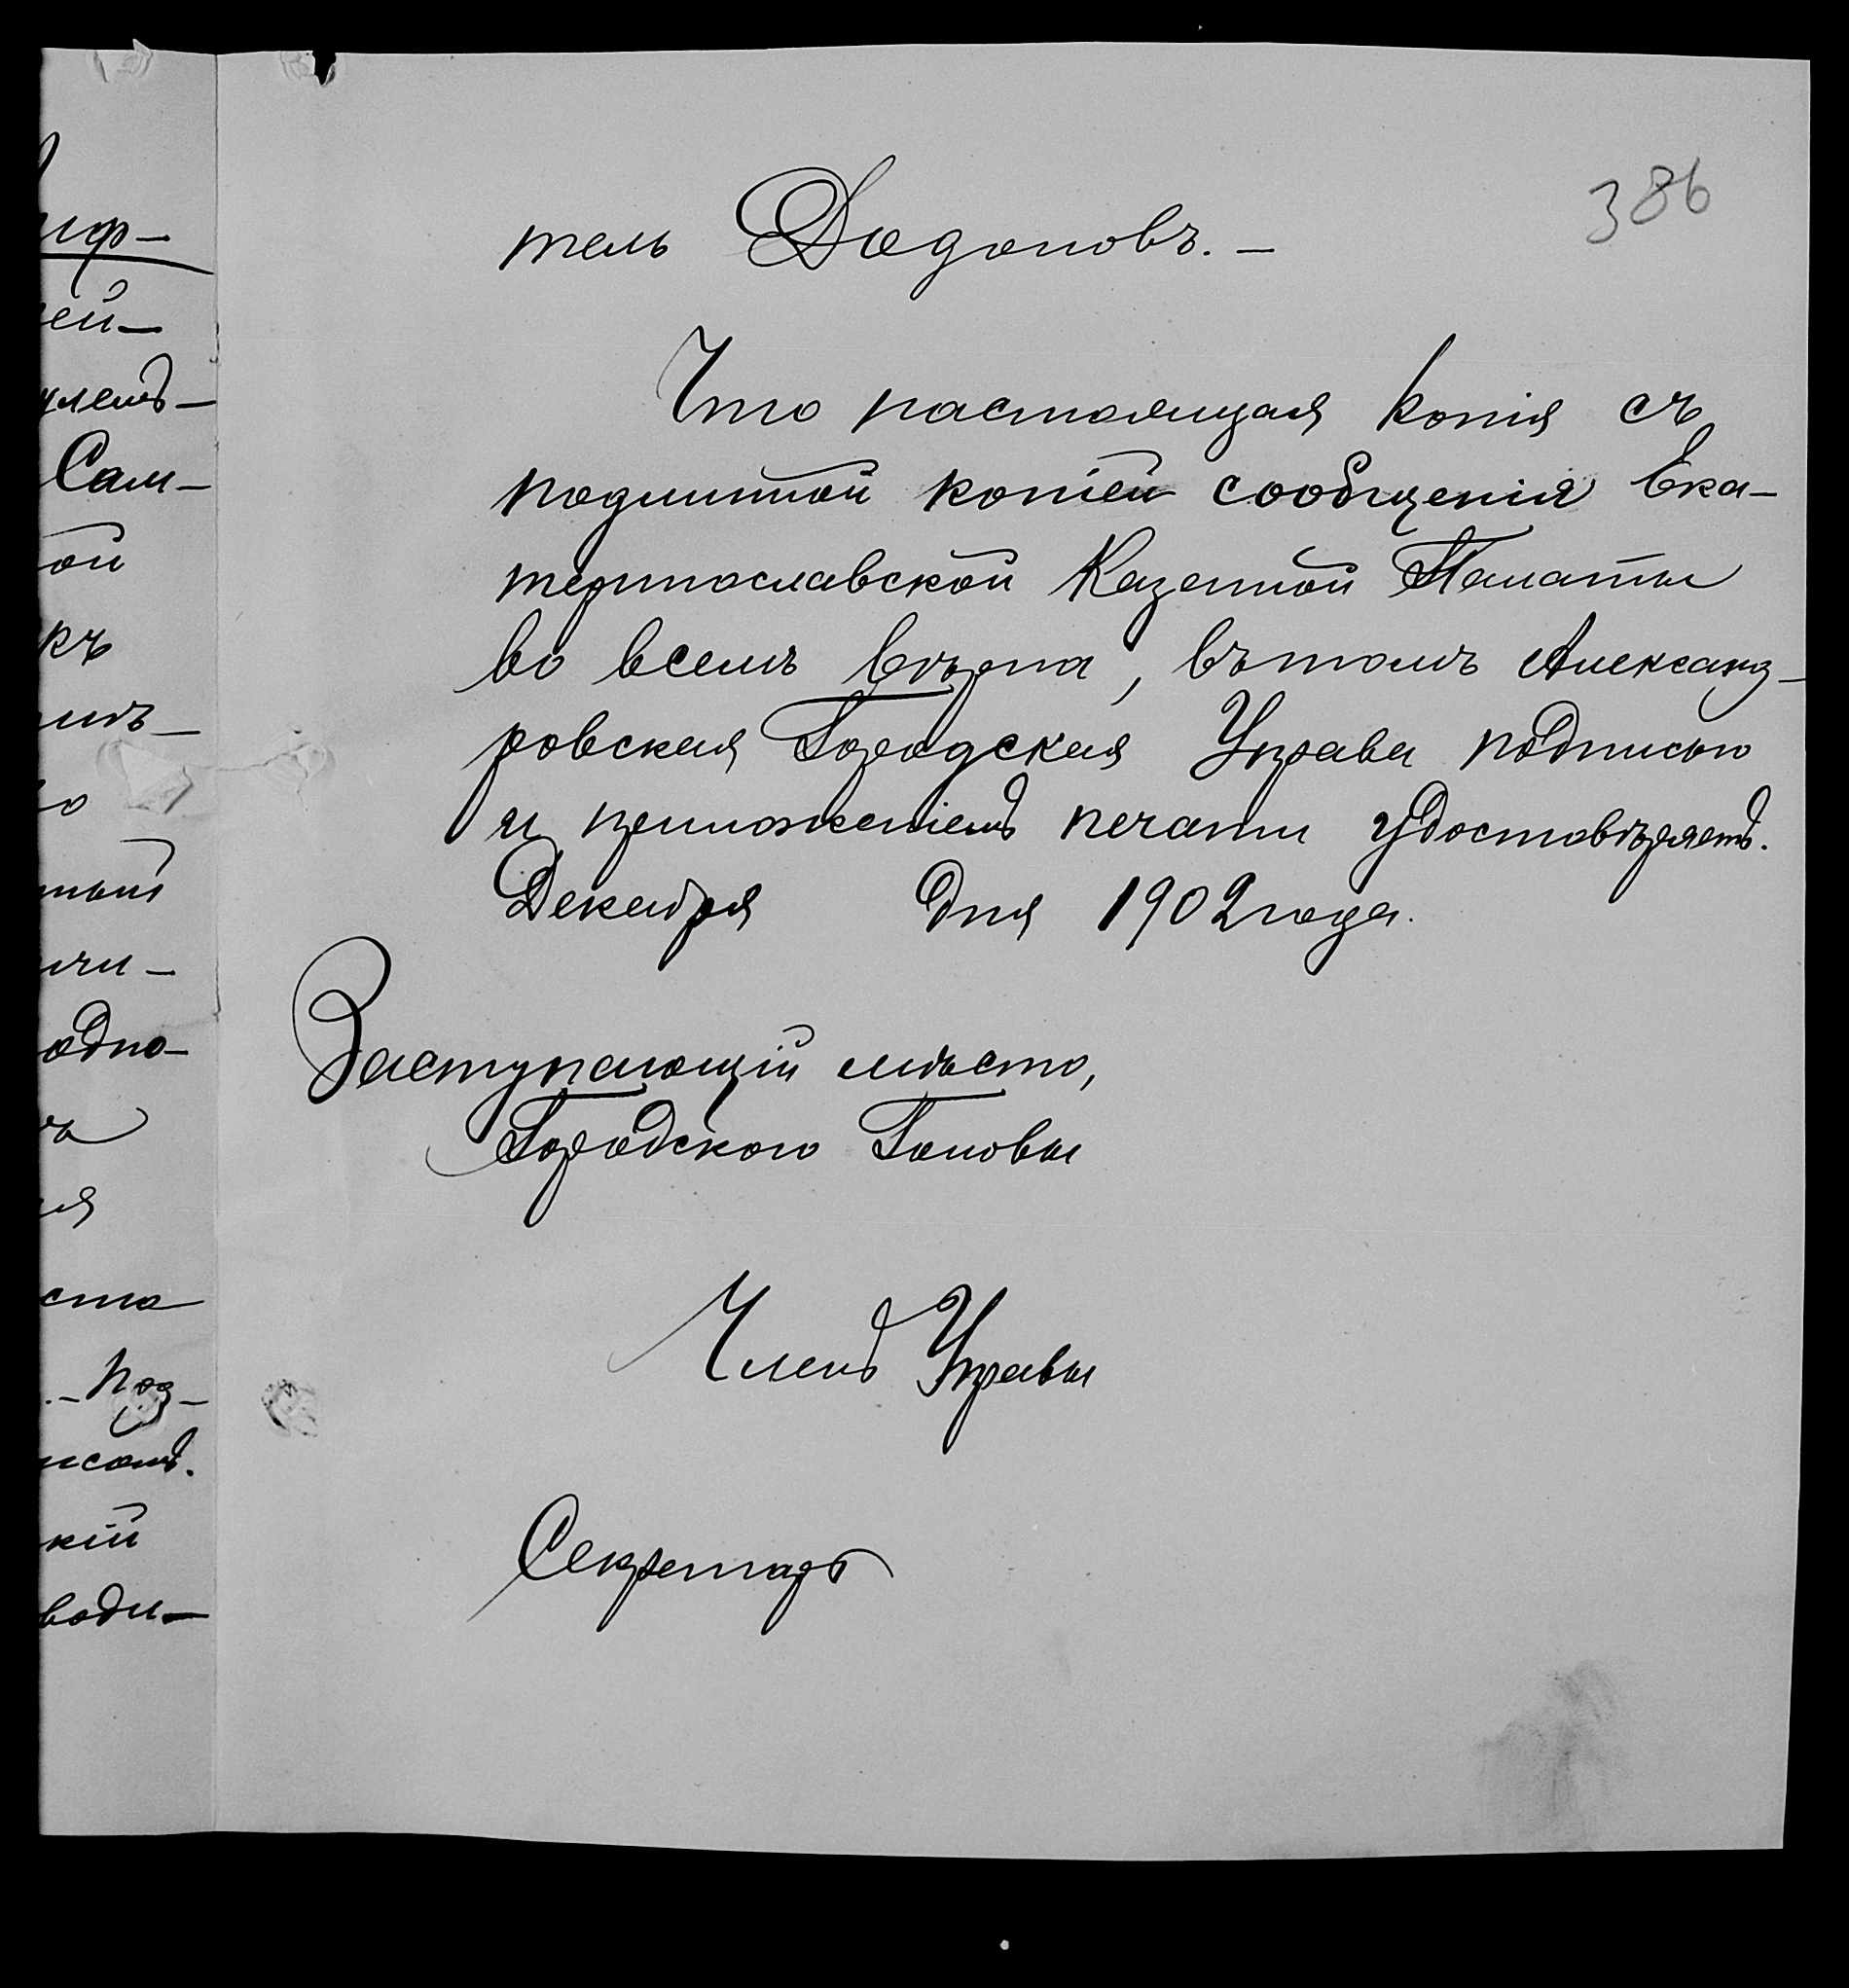 386
тель Додоновъ. —
Что настоящая копія съ
подлинной копіей сообщенія Ека-
теринославской Казенной Палаты
во всемъ вѣрна, въ томъ Александ-
ровская Городская Управа подписью
и приложеніемъ печати удостовѣряетъ.
Декабря дня 1902 года.
Заступающій мѣсто,
Городского Головы
Членъ Управы
Секретарь
иф-
ей-
Сам-
ой
къ
одно-
ста
. - Под-
кій
води-